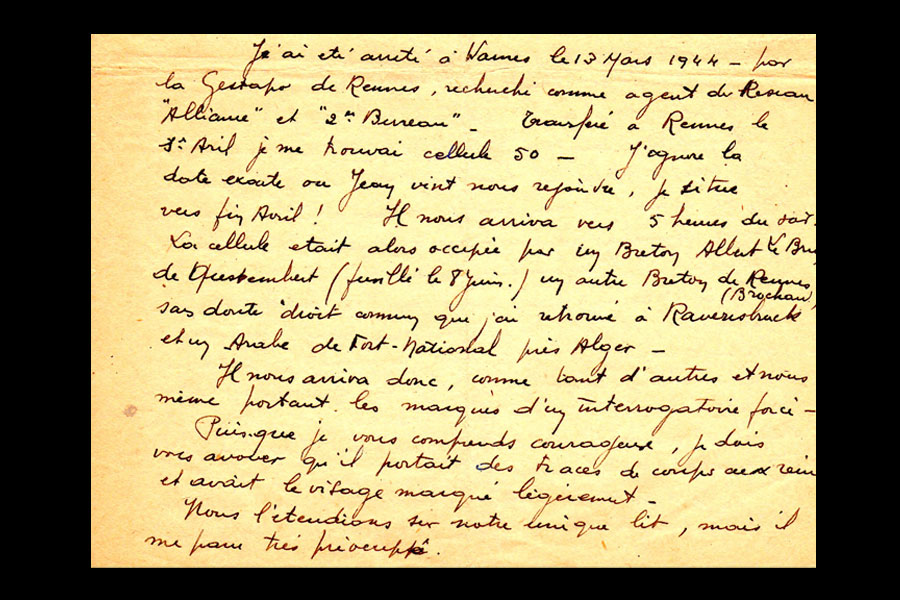 J'ai eté arreté à Vannes le 13 Mars 1944 - par
la Gestapo de Rennes, recherché comme agent du Reseau
"Alliance" et "2me Bureau" - Transféré à Rennes le
1er Avril je me trouvai cellule 50 - J'ignore la
date exacte ou Jean vint nous rejoindre, je situe
vers fin Avril ! Il nous arriva vers 5 heures du soir.
La cellule etait alors occupée par un Breton Le
de Questembert (fusillé le 8 Juin.) un autre Breton de Rennes
sans doute droit commun que j'ai retrouvé à Ravensbruck
et un Arabe de Fort-National près Alger -
Il nous arriva donc, comme tant d'autres et nous
même portant les marques d'un interrogatoire forcé -
Puisque je vous comprends courageuse, je dois
vous avouer qu'il portait des traces de coups aux rein
et avait le visage marqué légèrement -
Nous l'étendions sur notre unique lit, mais il
me parut très préoccuppé.